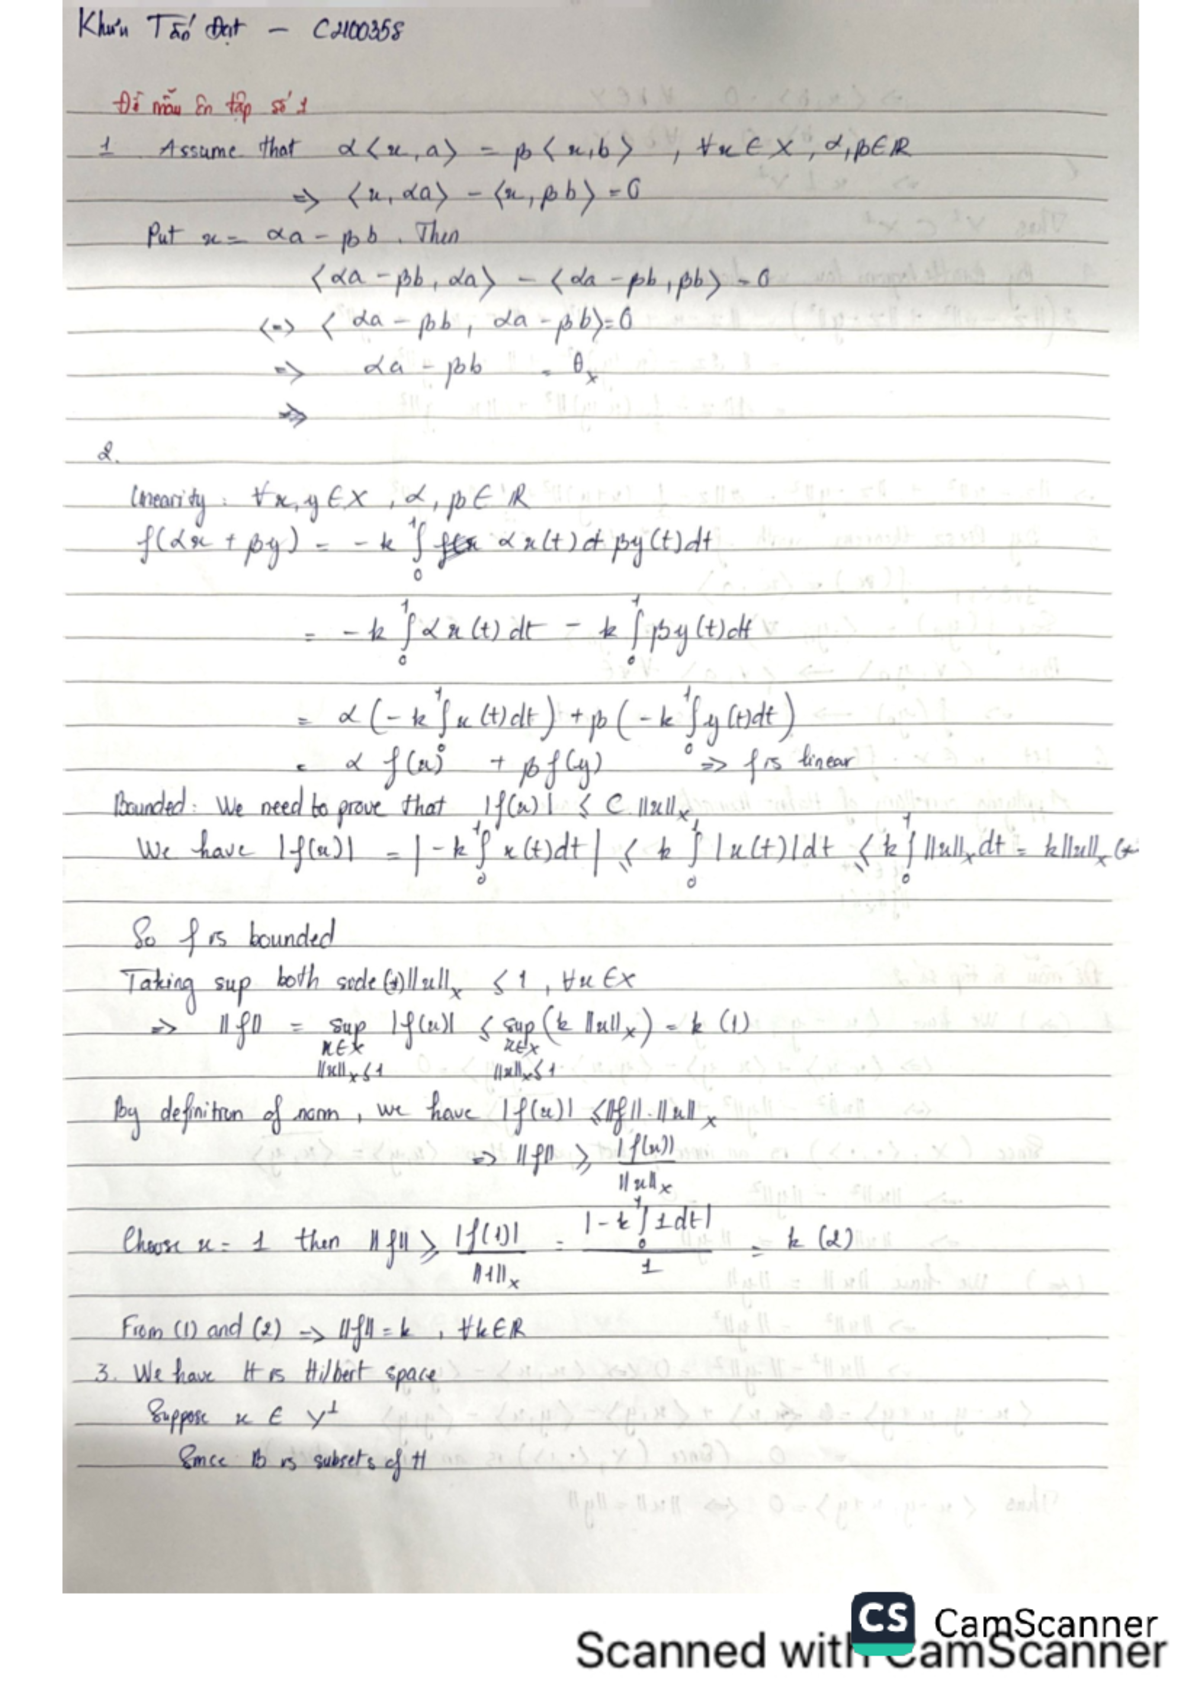 Khưu Tấn Đạt – C2100358
Đề mẫu ôn tập số 1
1 Assume that α⟨x,a⟩ = β⟨x,b⟩ , ∀x∈X, α,β∈ℝ
=> ⟨x,αa⟩ – ⟨x,βb⟩ = 0
Put x = αa – βb. Then
⟨αa – βb, αa⟩ – ⟨αa – βb, βb⟩ = 0
<=> ⟨αa – βb, αa – βb⟩ = 0
=> αa – βb = θ_X
=>
2.
Linearity: ∀x,y∈X , α, β∈ℝ
f(αx + βy) = –k ∫₀¹ αx(t) + βy(t)dt
= –k ∫₀¹ αx(t)dt – k ∫₀¹ βy(t)dt
= α(–k ∫₀¹ x(t)dt) + β(–k ∫₀¹ y(t)dt)
= α f(x) + β f(y) => f is linear
Bounded: We need to prove that |f(x)| ≤ C.||x||_X
We have |f(x)| = |–k ∫₀¹ x(t)dt| ≤ k ∫₀¹ |x(t)|dt ≤ k ∫₀¹ ||x||_X dt = k||x||_X (*
So f is bounded
Taking sup both side (*) ||x||_X ≤ 1 , ∀x∈X
=> ||f|| = sup |f(x)| ≤ sup (k ||x||_X) = k (1)
x∈X x∈X
||x||_X≤1 ||x||_X≤1
By definition of norm, we have |f(x)| ≤ ||f||.||x||_X
=> ||f|| ≥ |f(x)| / ||x||_X
Choose x = 1 then ||f|| ≥ |f(1)| / ||1||_X = |–k ∫₀¹ 1dt| / 1 = k (2)
From (1) and (2) => ||f|| = k , ∀k∈ℝ
3. We have H is Hilbert space
Suppose x ∈ Y^⊥
Since B is subsets of H
CS CamScanner
Scanned with CamScanner